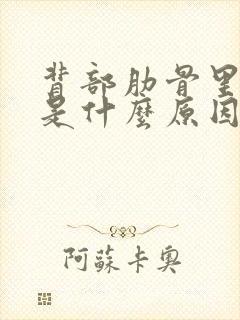 背部肋骨里
是什麼原因
阿蘇卡奧